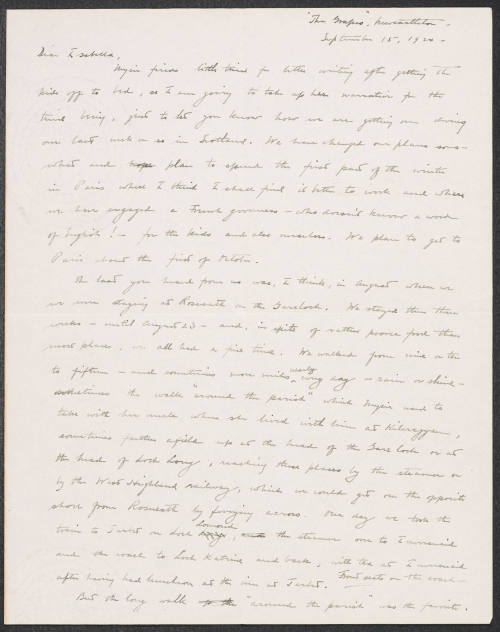 "The Grapes", Newcastleton -
September 15, 1920 -
Dear Isabella,
Myra finds little time for letter writing after getting the
kids off to bed, so I am going to take up her narrative for the
time being, just to let you know how we are getting on during
our last week or so in Scotland. We have changed our plans some-
what and hope plan to spend the first part of the winter
in Paris where I think I shall find it better to work and where
we have engaged a French governess - who doesn't know a word
of English! - for the kids and also ourselves. We plan to get to
Paris about the first of October.
The last you heard from us was, I think, in August when we
were staying at Roseneath on the Gareloch. We stayed there three
weeks - until August 23 - and, in spite of rather poorer food than
most places, we all had a fine time. We walked from nine or ten
to fifteen - and sometimes more miles, nearly every day - rain or shine -
sometimes the walk "around the parish" which Myra used to
take with her uncle when she lived with him at Kilcreggan,
sometimes farther afield up at the head of the Gareloch or at
the head of Loch Long, reaching these places by the steamer or
by the West Highland railway, which we could get on the opposite
shore from Roseneath by ferrying across. One day we took the
train to Tarbet on Loch Long Lomond, and the steamer on to Inversnaid
and the coach to Loch Katrine and back, with tea at Inversnaid
after having had luncheon at the inn at Tarbet. Front seats on the coach -
But the long walk "around the parish" was the favorite.